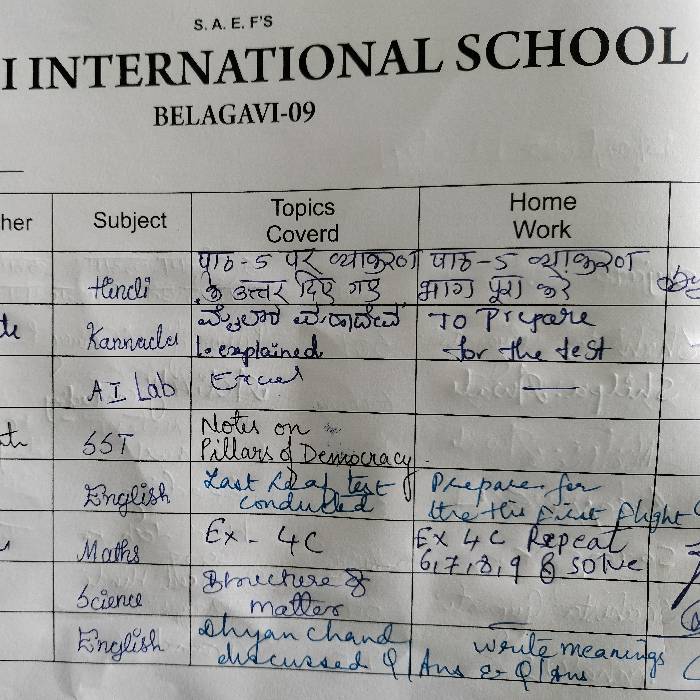 S. A. E. F'S
I INTERNATIONAL SCHOOL
BELAGAVI-09
her Subject Topics Coverd Home Work
Hindi पाठ-5 पर व्याकरण पाठ-5 व्याकरण
के उत्तर दिए गए भाग पूरा करे
Kannada ಮೈಲಾರ ಮಹಾದೇವ To Prepare
explained for the test
AI Lab Excel —
SST Notes on
Pillars of Democracy
English Last test Prepare for
conducted the First flight
Maths Ex - 4C Ex 4C Repeat
6,7,8,9 solve
Science Structure of
matter
English Dhyan Chand write meanings
discussed Q/Ans & Q/Ans